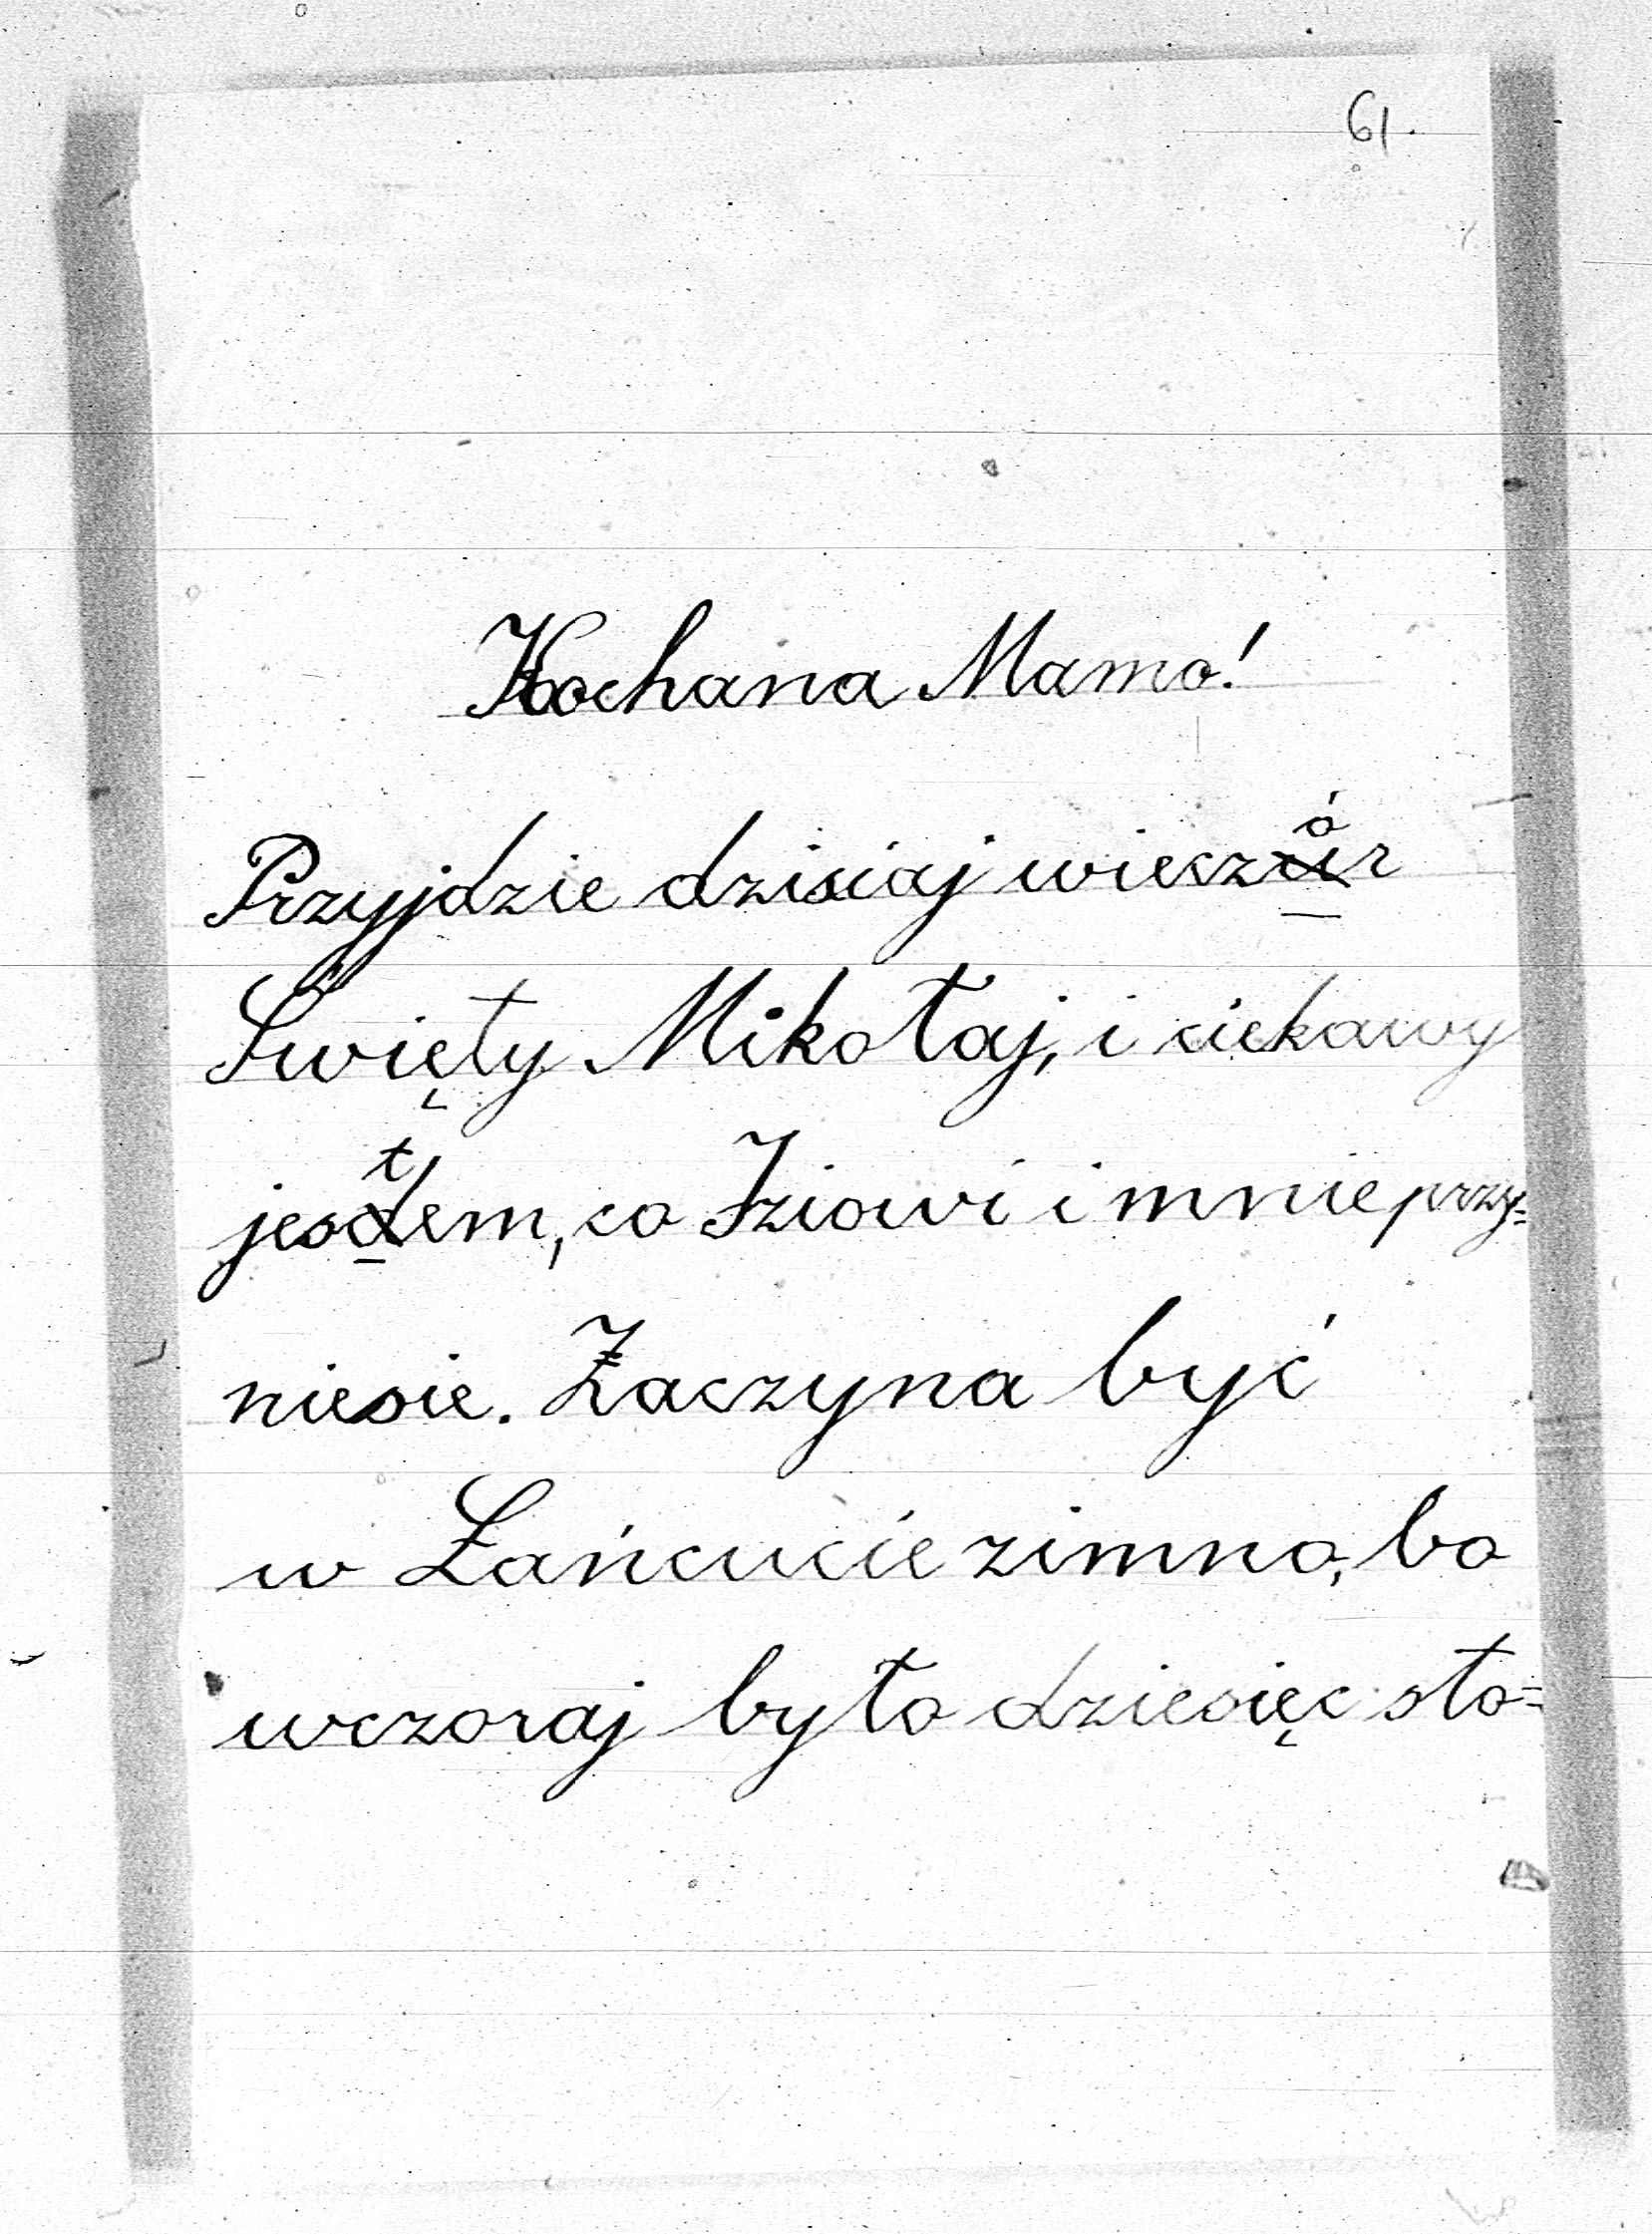 61.
Kochana Mamo!
Przyjdzie dzisiaj wieczór
Święty Mikołaj, i ciekawy
jestem, co Iziowi i mnie przy=
niesie. Zaczyna być
w Łańcucie zimno, bo
wczoraj było dziesięc sto=